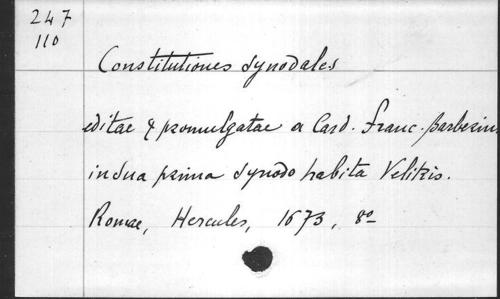 247
110
Constitutiones synodales
editae & promulgatae a Card. Franc. Barberin.
in sua prima synodo habita Velitris.
Romae, Hercules, 1673, 8º